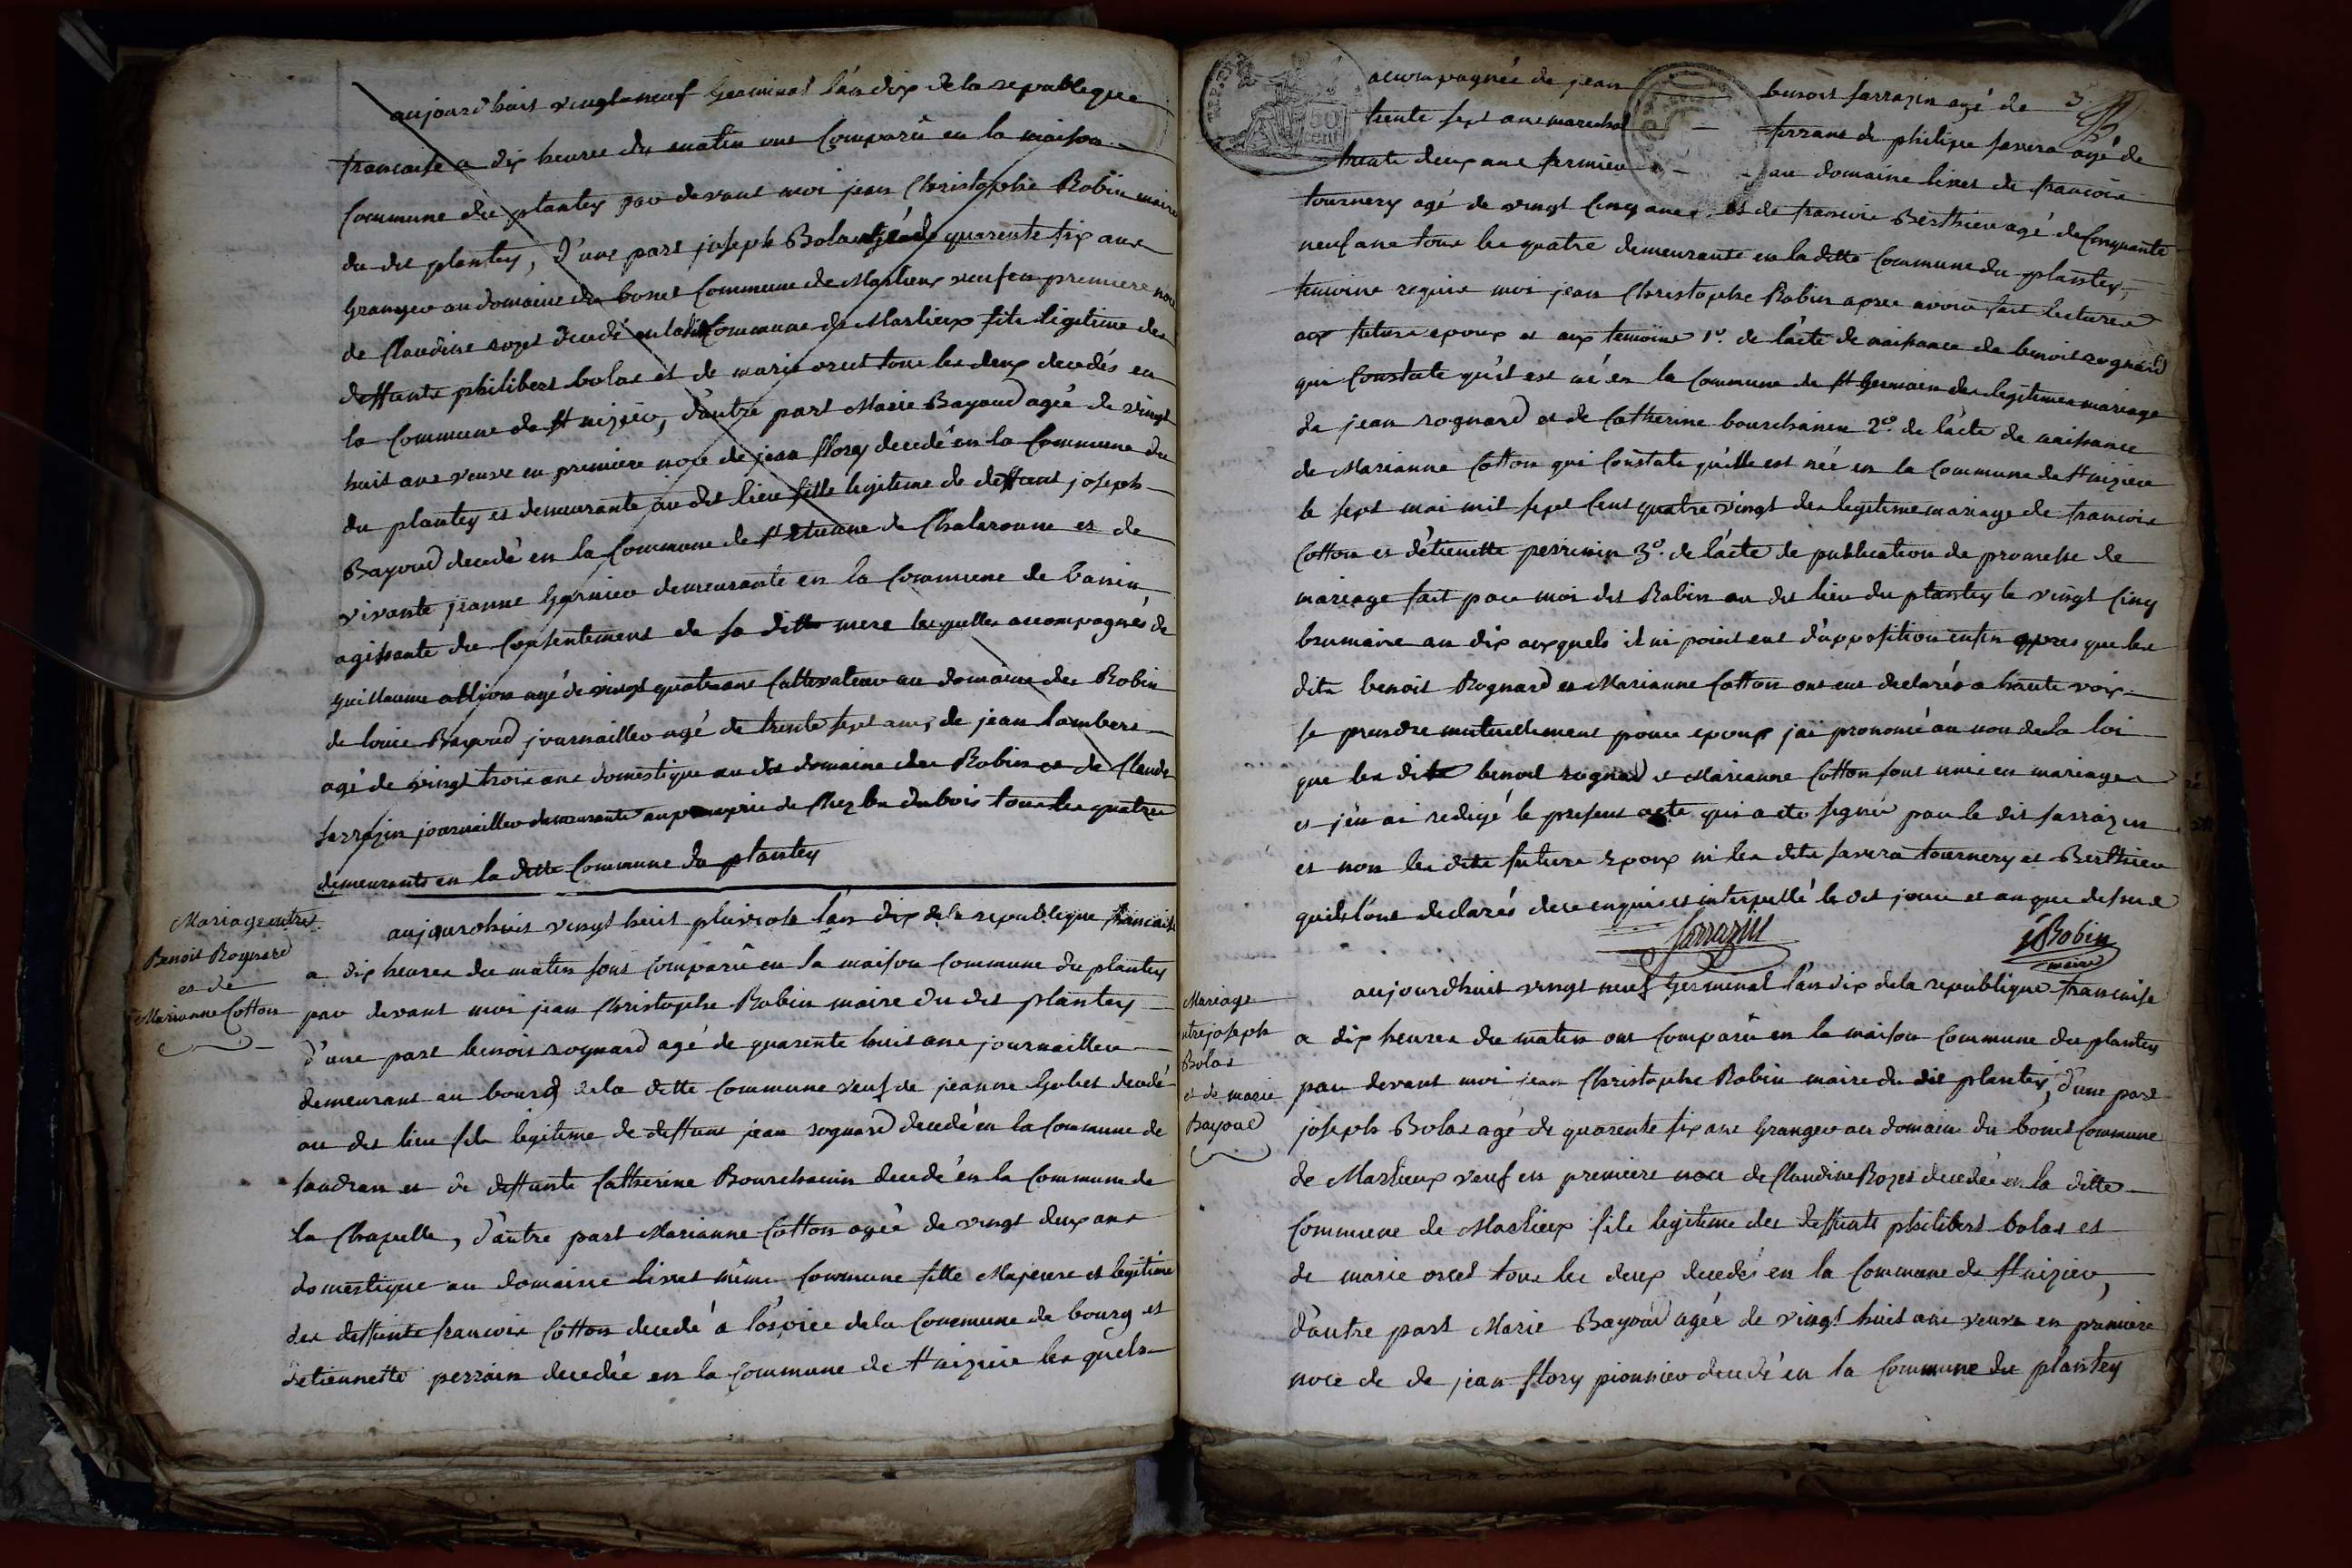 aujourdhuit vingt neuf Germinal l'an dix de la republique
francaise a dix heures du matin ont Comparû en la maison
Commune du plantey par devant moi jean Christophe Robin maire
du dit plantey, d'une part joseph Bolas agé de quarente six ans
Granger au domaine du bonet Commune de Marlieux veuf en premiere noce
de Claudine rozet decedé en la ditte Commune de Marlieux fils legitime des
deffunts philibert bolas et de marie oret tous les deux decedés en
la Commune de St nizier, d'autre part Marie Bayoud agée de vingt
huit ans veuve en premiere noce de jean flory decedé en la Commune du
du plantey et demeurante au dit lieu fille legitime de deffunt joseph
Bayoud decedé en la Commune de St Etienne de Chalaronne et de
vivante jeanne Garnier demeurante en la Commune de banin
agissante du Consentement de sa ditte mere lesquelles accompagnés de
Guillaume agé de vingt quatre ans Cultivateur au domaine des Robin
de louis Bayoud journaillier agé de trente sept ans, de jean lambert
agé de vingt trois ans domestique au dit domaine des Robin et de Claude
sarrazin journaillier demeurante au de Chez les dubois tous les quatre
demeurants en la ditte Commune du plantey
Mariage entre
Benoit Rognard
et de
Marianne Cotton
aujourdhuit vingt huit pluviose l'an dix de la republique francaise
a dix heures du matin sont Comparû en la maison Commune du plantey
par devant moi jean Christophe Robin maire du dit plantey
d'une part benoit rognard agé de quarente huit ans journaillier
demeurant au bourg de la ditte Commune veuf de jeanne Gobet decedé
au dit lieu fils legitime de deffunt jean rognard decedé en la Commune de
sandran et de deffunte Catherine Bourchanin decedé en la Commune de
la Chapelle, d'autre part Marianne Cotton agée de vingt deux ans
domestique au domaine livet même Commune fille Majeure et legitime
des deffunts francois Cotton decedé á l'ospice de la Commune de bourg et
d'etiennette perrain decedée en la Commune de St nizier les quels
accompagnée de jean benoit sarrazin agé de 3
trente sept ans marechal ferrant de philipe savera agé de
trente deux ans fermier au domaine livet de francois
tournery agé de vingt Cinq ans, et de francois Berthier agé de Cinquante
neuf ans tous les quatre demeurants en la ditte Commune du plantey,
temoins requis moi jean Christophe Robin apres avoir fait lecture
aux futurs epoux et aux temoins 1º. de l'acte de naissance de benoit rognard
qui Constate qu'il est né en la Commune de St Germain des legitime mariage
de jean rognard et de Catherine bourchanin 2º. de l'acte de naissance
de Marianne Cotton qui Constate qu'elle est née en la Commune de St nizier
le sept mai mil sept Cent quatre vingt des legitime mariage de francois
Cotton et d'etienette perrinin 3º. de l'acte de publication de promesse de
mariage fait par moi dit Robin au dit lieu du plantey le vingt Cinq
brumaire an dix auxquels il ni point eut d'opposition enfin apres que les
dits benoit Rognard et Marianne Cotton ont eut declarés a haute voix
se prendre mutuellement pour epoux jai prononcé au nom de la loi
que les dits benoit rognard et Marianne Cotton sont unis en mariage
et j'en ai redigé le present acte qui a ete signé par le dit sarrazin
et non les dits futurs Epoux ni les dits savera tournery et Berthier
quils l'ont declarés de ce enquis et interpellé le dit jour et an que dessus
Sarrazin
Robin
maire
Mariage
ntre joseph
Bolas
et de marie
Bayoud
aujourdhuit vingt neuf Germinal l'an dix de la republique francaise
a dix heures du matin ont Comparû en la maison Commune du plantey
par devant moi jean Christophe Robin maire du dit plantey, d'une part
joseph Bolas agé de quarente six ans Granger au domaine du bonet Commune
de Marlieux veuf en premiere noce de Claudine Rozet decedée en la ditte
Commune de Marlieux fils legitime des deffunts philibert bolas et
de marie oret tous les deux decedés en la Commune de St nizier,
d'autre part Marie Bayoud agée de vingt huit ans veuve en premiere
noce de de jean flory pionnier decedé en la Commune du plantey